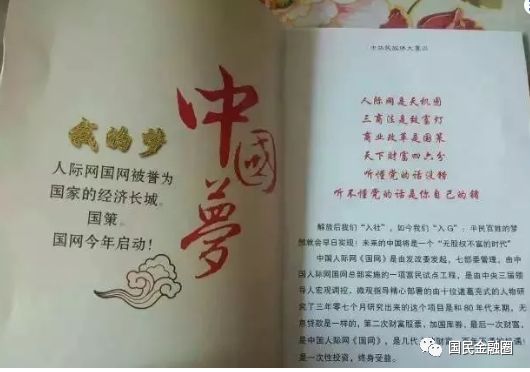 我的梦
中國夢
人际网国网被誉为
国家的经济长城。
国策。
国网今年启动！
人际网是天机图
三商法是致富灯
商业改革是国策
天下财富四六分
听懂党的话没错
听不懂党的话是你自己的错
解放后我们“入社”，如今我们“入G”：平民百姓的梦
想就会早日实现！未来的中国将是一个“无股权不富的时代”
中国人际网《国网》是由发改委发起，七部委管理，由中
国人际网国网总部实施的一项富民试点工程，是由中央三届领
导人宏观调控，微观指导精心部署的由十位诸葛式的人物研
究了三年零七个月研究出来的这个项目是和80年代末期，无
息贷款是一样的，第二次财富股票，加国库券，最后一次财富，
是中国人际网《国网》，是几代
是一次性投资，终身受益。
国民金融圈